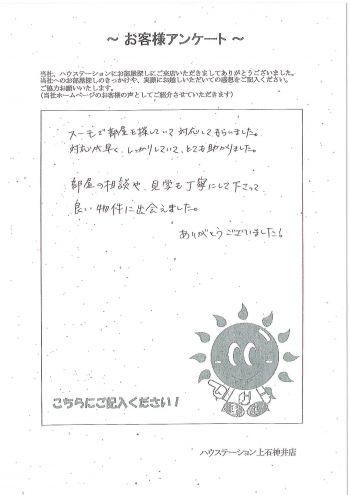 ～ お客様アンケート ～
当社、ハウステーションにお部屋探しにご来店いただきましてありがとうございました。
当社へのお部屋探しのきっかけや、実際にお越しいただいての感想をご記入ください。
ご協力お願いいたします。
(当社ホームページのお客様の声としてご紹介させていただきます)
スーモで部屋を探していて対応してもらいました。
対応が早く、しっかりしていて、とても助かりました。
部屋の相談や、見学も丁寧にして下さって
良い物件に出会えました。
ありがとうございました!
こちらにご記入ください!
ハウステーション上石神井店